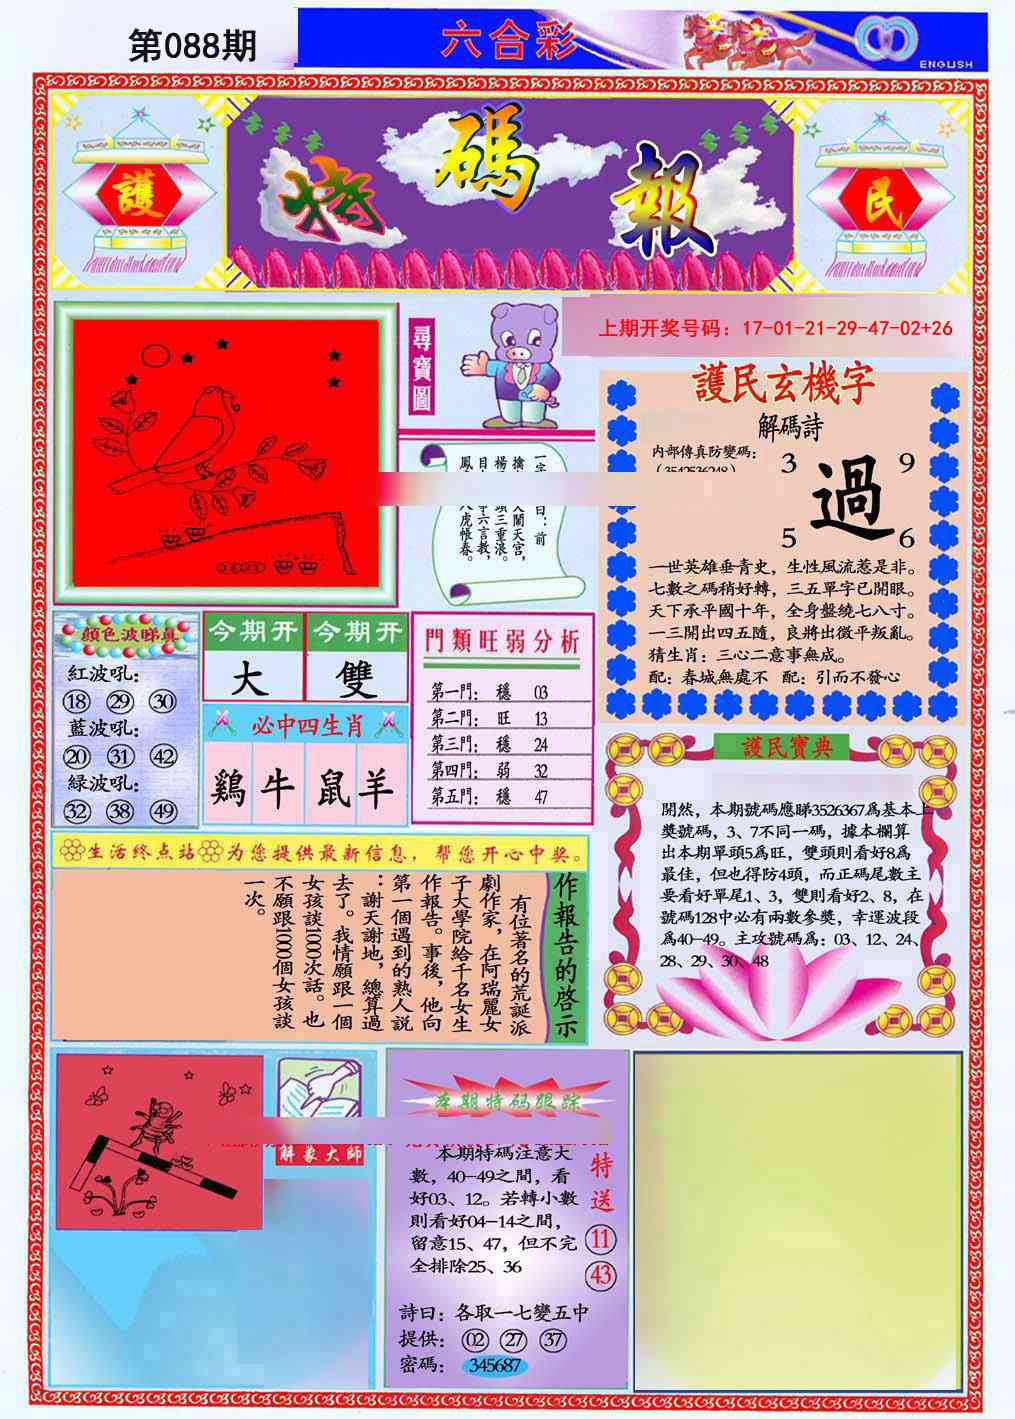 第088期
六合彩
ENGLISH
護
特碼報
民
尋寶圖
上期开奖号码：17-01-21-29-47-02+26
護民玄機字
解碼詩
内部傳真防變碼：
3 9
過
5 6
一世英雄垂青史，生性風流惹是非。
七數之碼稍好轉，三五單字已開眼。
天下承平國十年，全身盤繞七八寸。
一三開出四五隨，良將出徵平叛亂。
猜生肖：三心二意事無成。
配：春城無處不 配：引而不發心
顔色波睇真
紅波吼：
18 29 30
藍波吼：
20 31 42
緑波吼：
32 38 49
今期开 今期开
大 雙
必中四生肖
鷄 牛 鼠 羊
門類旺弱分析
第一門： 穩 03
第二門： 旺 13
第三門： 穩 24
第四門： 弱 32
第五門： 穩 47
護民寶典
開然，本期號碼應睇3526367爲基本上
獎號碼，3、7不同一碼，據本欄算
出本期單頭5爲旺，雙頭則看好8爲
最佳，但也得防4頭，而正碼尾數主
要看好單尾1、3，雙則看好2、8，在
號碼128中必有兩數參獎，幸運波段
爲40-49。主攻號碼爲：03、12、24、
28、29、30、48
生活终点站 为您提供最新信息，帮您开心中奖。
作報告的啓示
有位著名的荒誕派
劇作家，在阿瑞麗女
子大學院給千名女生
作報告。事後，他向
第一個遇到的熟人說
：謝天謝地，總算過
去了。我情願跟一個
女孩談1000次話。也
不願跟1000個女孩談
一次。
解象大師
本期特码跟踪
本期特码注意大
數，40-49之間，看
好03、12。若轉小數
則看好04-14之間，
留意15、47，但不完
全排除25、36
特送
11
43
詩曰：各取一七變五中
提供： 02 27 37
密碼： 345687